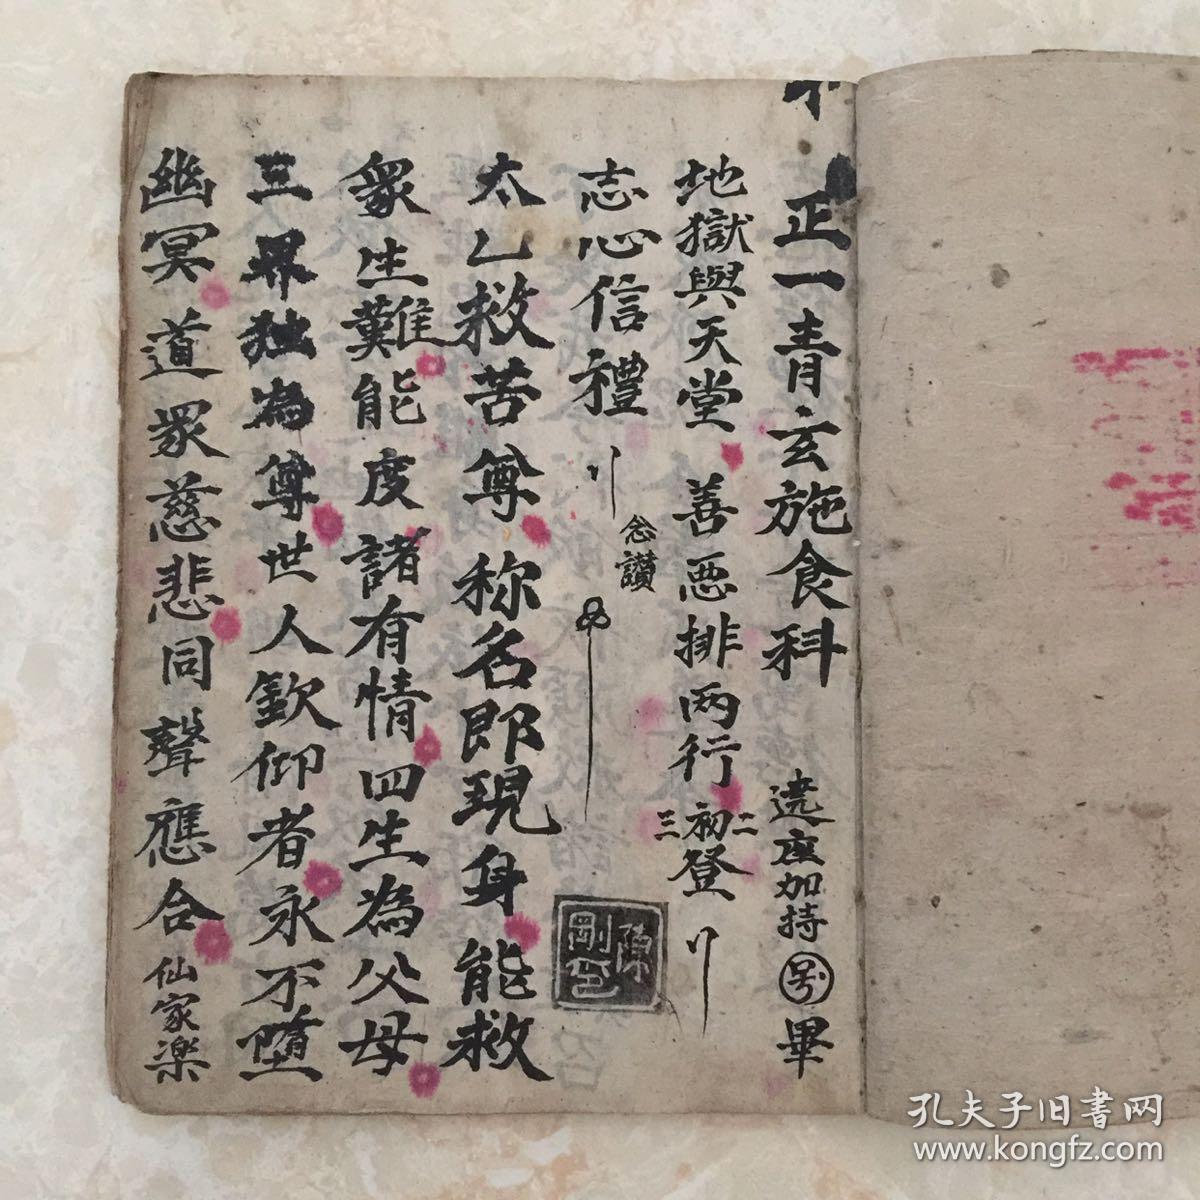 正一青玄施食科 遶座加持 畢
地獄與天堂 善恶排两行 初登 二 三
志心信禮 念讃
太乙救苦尊 称名即現身 能救
衆生難 能度諸有情 四生為父母
三界独為尊 世人欽仰者 永不堕
幽冥 道眾慈悲 同聲應合 仙家楽
陳剛印
孔夫子旧书网
www.kongfz.com